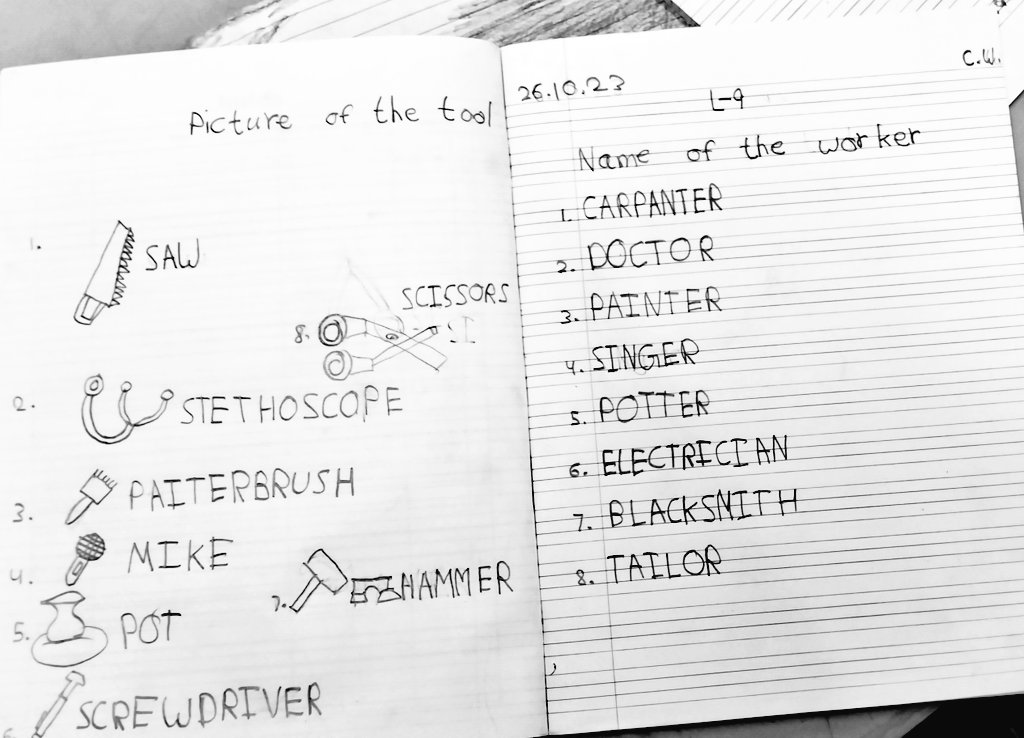 Picture of the tool
1. SAW
8. SCISSORS
SI
2. STETHOSCOPE
3. PAITERBRUSH
4. MIKE
7. HAMMER
5. POT
6. SCREWDRIVER
26.10.23
C.W.
L-9
Name of the worker
1. CARPANTER
2. DOCTOR
3. PAINTER
4. SINGER
5. POTTER
6. ELECTRICIAN
7. BLACKSMITH
8. TAILOR